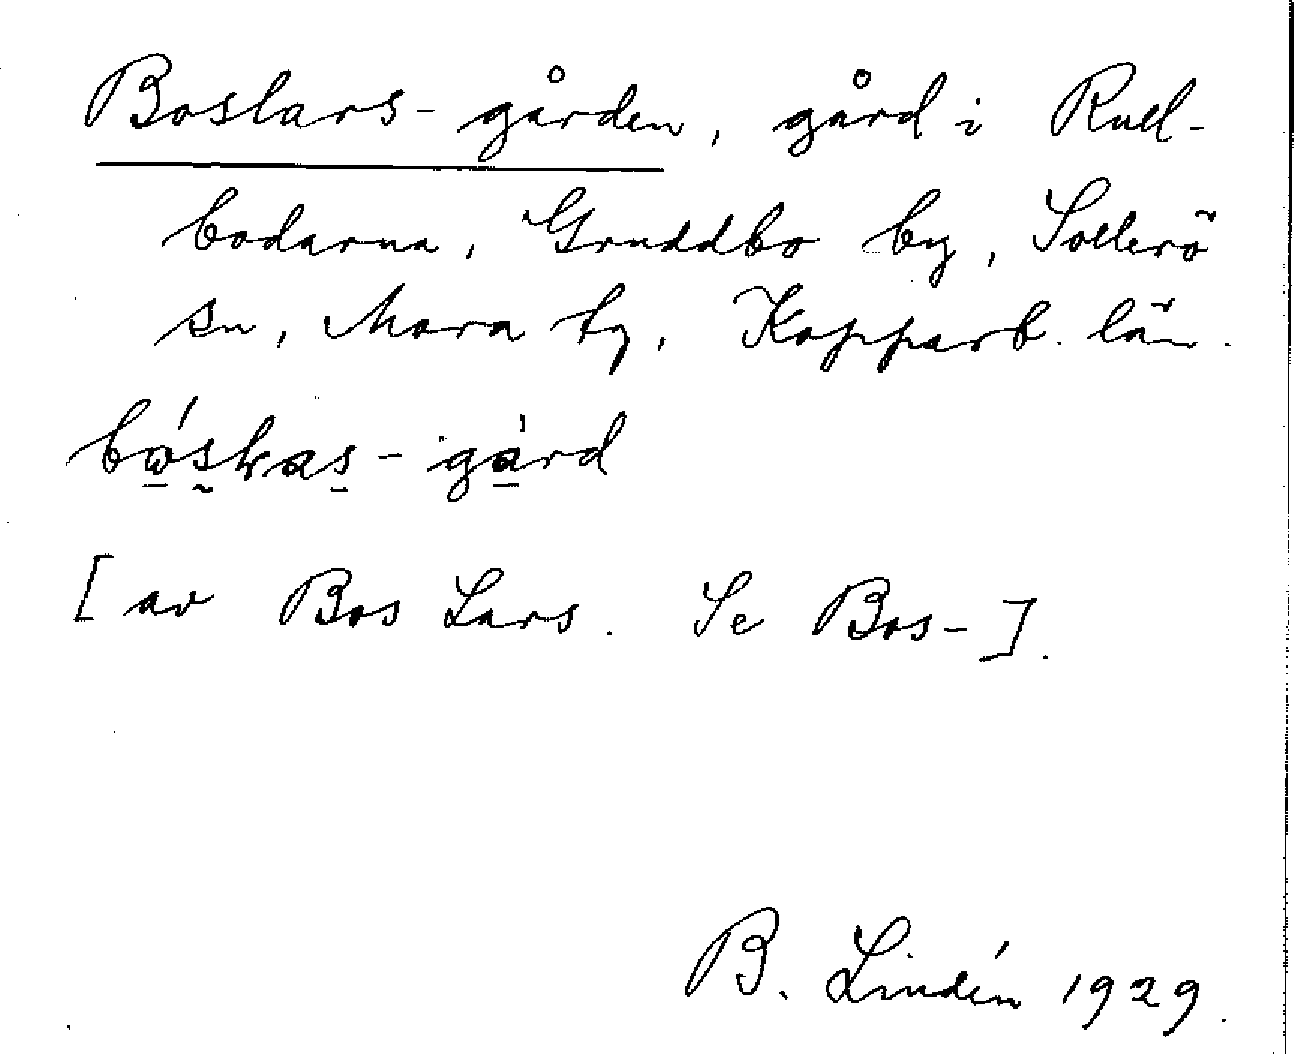 Boslars-gården, gård i Rull-
bodarna, Gruddbo by, Sollerö
sn, Mora tg, Kopparb. län.
[av Bos Lars. Se Bos-].
B. Lindén 1929.